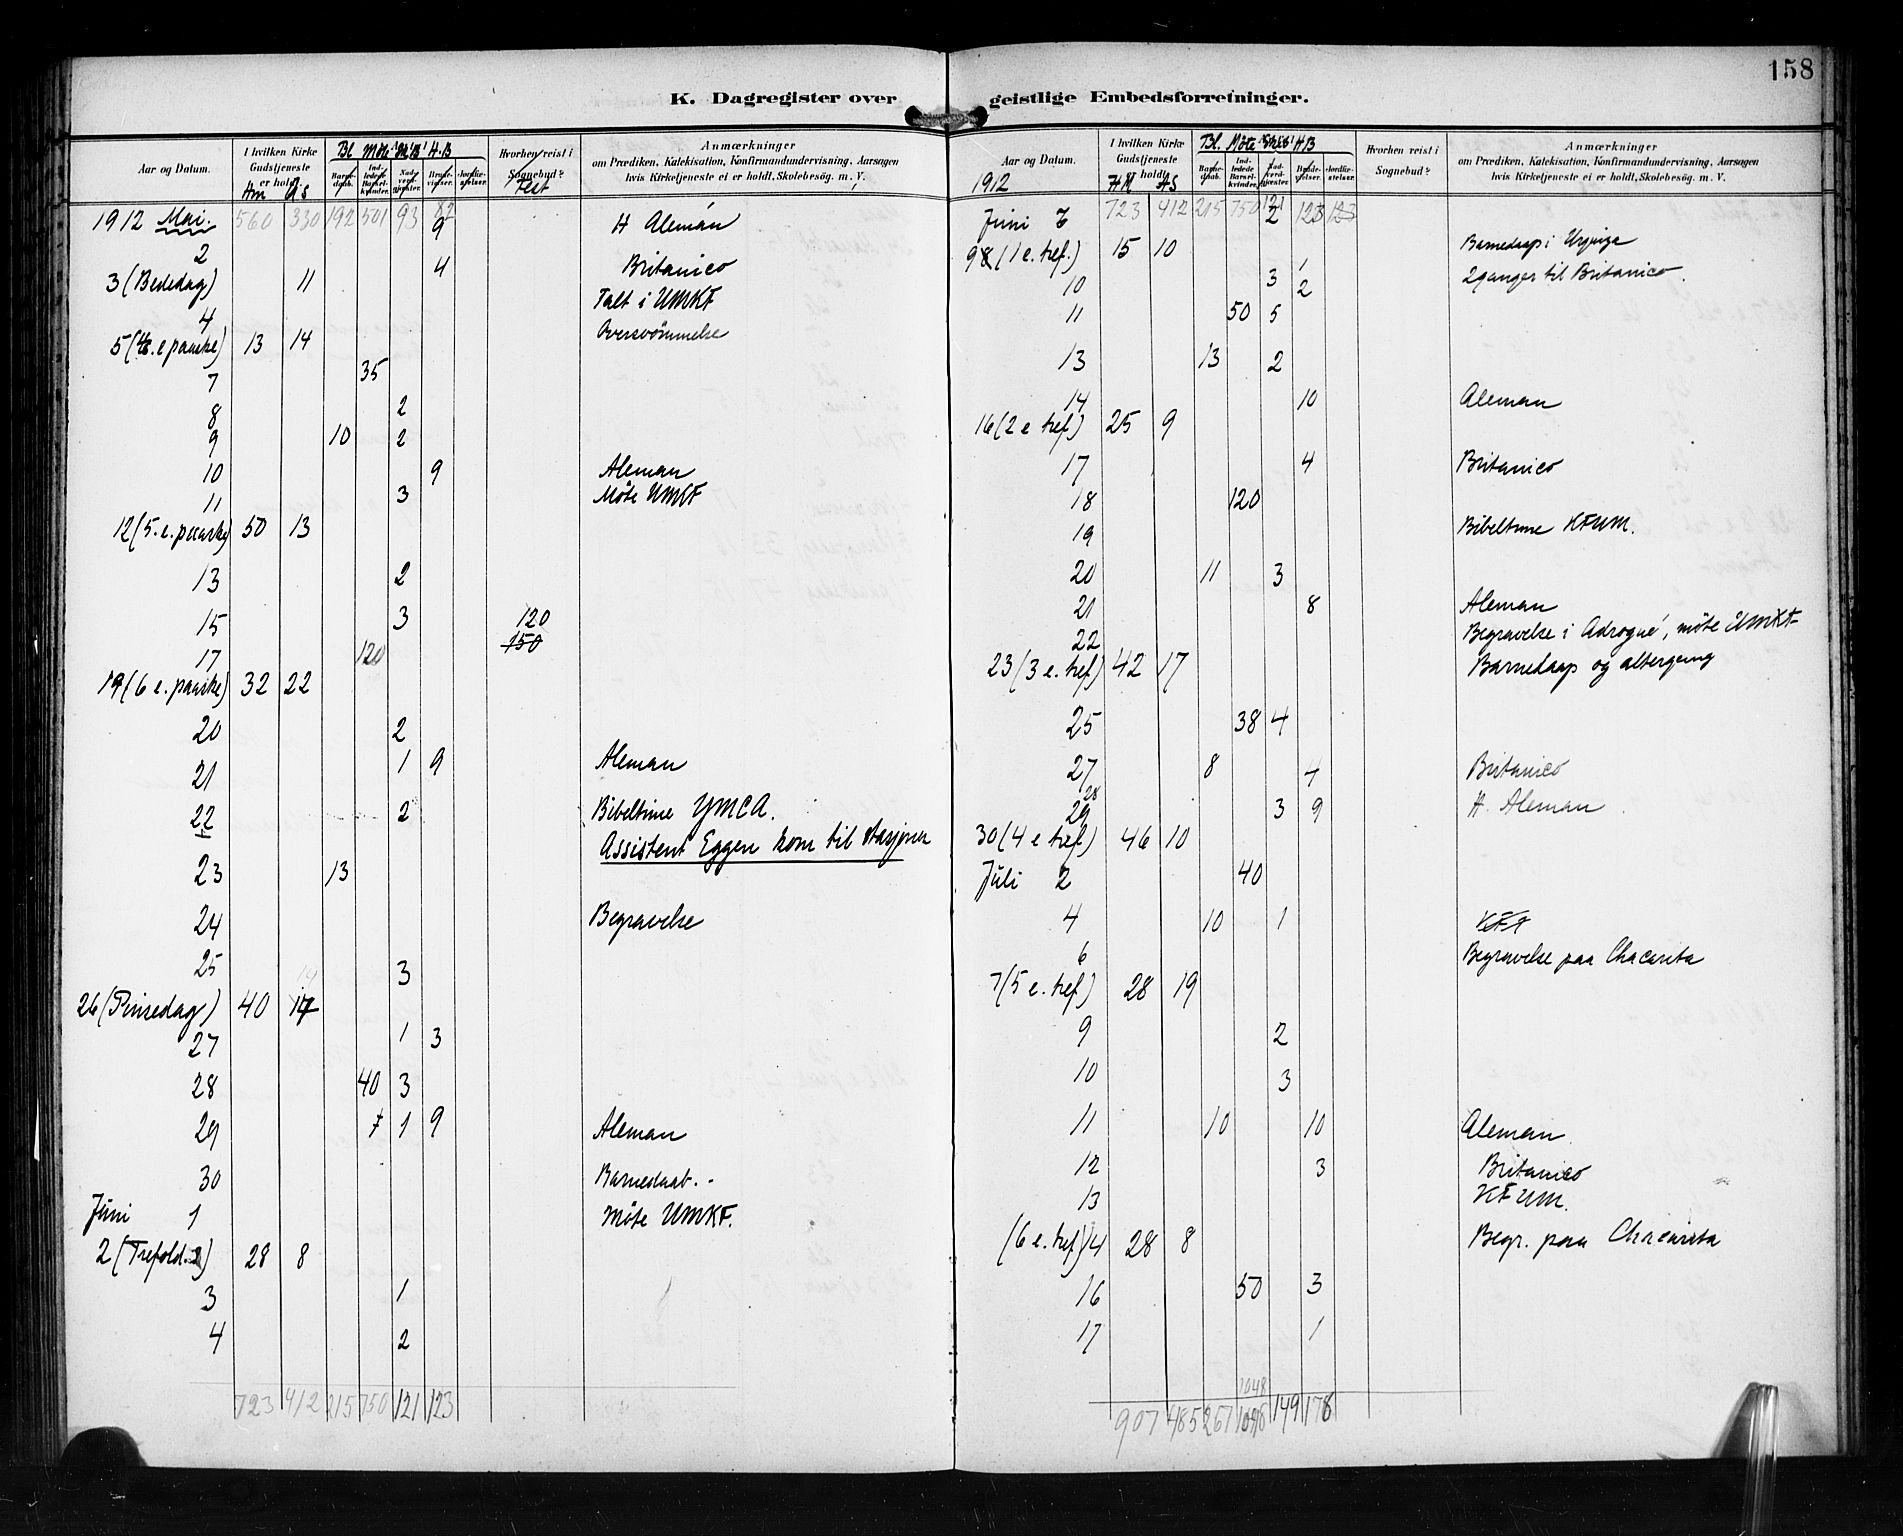 158
K. Dagregister over geistlige Embedsforretninger.
Aar og Datum. | I hvilken Kirke Gudstjeneste er holdt. | Barnedaab. | Indledede Barselkvinder. | Nadverdgjester. | Brudevielser. | Jordfæstelser. | Hvorhen reist i Sognebud? | Anmærkninger om Prædiken, Katekisation, Konfirmandundervisning, Aarsagen hvis Kirketjeneste ei er holdt, Skolebesøg. m. V.
Hm | AS | Bl. | Möte | H.B | Fest
1912 Mai. 560 330 192 501 93 87
9 H Alemán
2 4 Britanico
3 (Bededag) 11
4 Talt i UMKF
5 (4. e paaske) 13 14 Oversvömmelse
7 35
8 2
9 10 2
10 9 Aleman
11 3 Möte UMKF
12 (5. e. paaske) 50 13
13 2
15 3 120
17 120 150
19 (6 e. paaske) 32 22
20 2
21 1 9 Aleman
22 2 Bibeltime YMCA.
Assistent Eggen kom til stasjonen
23 13
24 Begravelse
25 3
26 (Pinsedag) 40 17
27 1 3
28 40 3
29 7 1 9 Aleman
30 Barnedaab.
Juni 1 Möte UMKF.
2 (Trefold.) 28 8
3 1
4 2
723 412 215 750 121 123
Aar og Datum. | I hvilken Kirke Gudstjeneste er holdt. | Barnedaab. | Indledede Barselkvinder. | Nadverdgjester. | Brudevielser. | Jordfæstelser. | Hvorhen reist i Sognebud? | Anmærkninger om Prædiken, Katekisation, Konfirmandundervisning, Aarsagen hvis Kirketjeneste ei er holdt, Skolebesøg. m. V.
1912 HM AS Bl. Möte HB
723 412 215 750 121 123 123
Juni 2
9 (1 e. tref.) 15 10 Barnedaap i
10 3 2 2 ganger til Britanico.
11 50 5
13 13 2
14 10 Aleman
16 (2 e tref) 25 9
17 4 Britanico
18 120
19 Bibeltime KFUM.
20 11 3
21 8 Aleman
22 Begravelse i Adrogué, möte UMKF
23 (3 e. tref) 42 17 Barnedaap og altergang
25 38 4
27 8 4 Britanico
28
29 3 9 H. Aleman
30 (4 e tref) 46 10
Juli 2 40
4 10 1
6 Begravelse paa Chacarita
7 (5 e. tref) 28 19
9 2
10 3
11 10 10 Aleman
12 3 Britanico
13 KFUM.
(6 e. tref) 14 28 8 Begr. paa Chacarita
16 50 3
17 1
1048
907 485 267 149 178